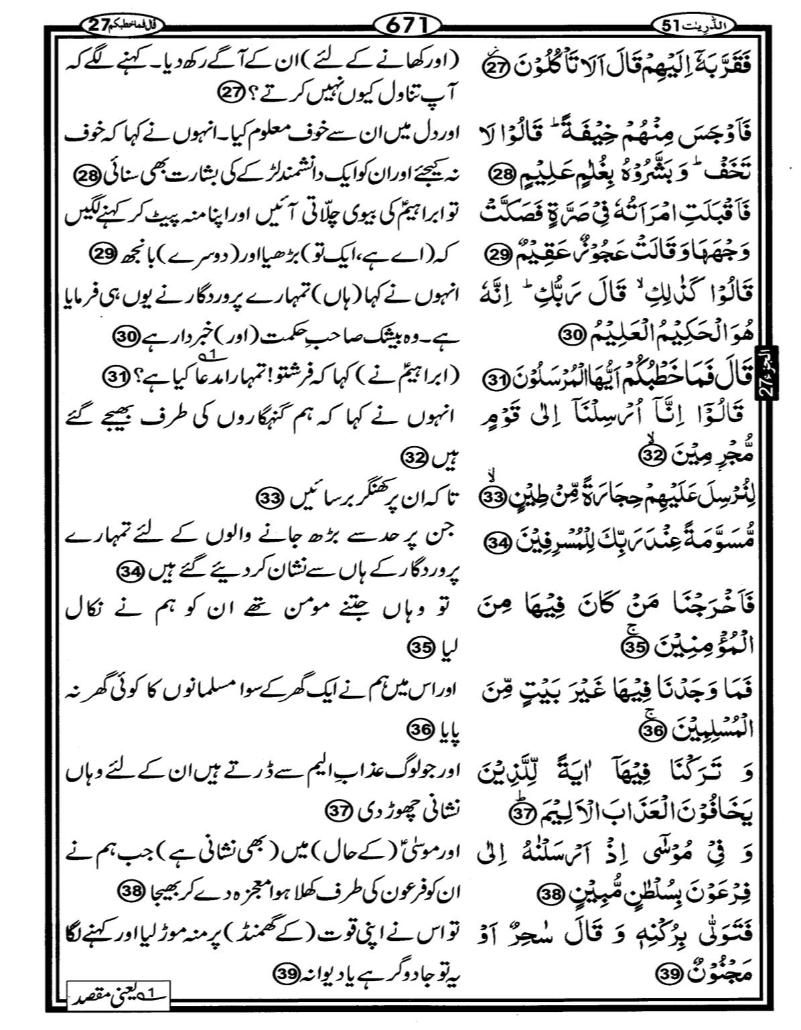 الذّٰرِیٰت 51
671
قَالَ فَمَا خَطْبُكُم 27
فَقَرَّبَهٗۤ اِلَيْهِمْ قَالَ اَلَا تَاْكُلُوْنَ 27
فَاَوْجَسَ مِنْهُمْ خِيْفَةً ؕ قَالُوْا لَا
تَخَفْ ؕ وَ بَشَّرُوْهُ بِغُلٰمٍ عَلِيْمٍ 28
فَاَقْبَلَتِ امْرَاَتُهٗ فِيْ صَرَّةٍ فَصَكَّتْ
وَجْهَهَا وَ قَالَتْ عَجُوْزٌ عَقِيْمٌ 29
قَالُوْا كَذٰلِكِ ۙ قَالَ رَبُّكِ ؕ اِنَّهٗ
هُوَ الْحَكِيْمُ الْعَلِيْمُ 30
قَالَ فَمَا خَطْبُكُمْ اَيُّهَا الْمُرْسَلُوْنَ 31
قَالُوْۤا اِنَّاۤ اُرْسِلْنَاۤ اِلٰى قَوْمٍ
مُّجْرِمِيْنَ ۙ 32
لِنُرْسِلَ عَلَيْهِمْ حِجَارَةً مِّنْ طِيْنٍ ۙ 33
مُّسَوَّمَةً عِنْدَ رَبِّكَ لِلْمُسْرِفِيْنَ 34
فَاَخْرَجْنَا مَنْ كَانَ فِيْهَا مِنَ
الْمُؤْمِنِيْنَ ۚ 35
فَمَا وَجَدْنَا فِيْهَا غَيْرَ بَيْتٍ مِّنَ
الْمُسْلِمِيْنَ ۚ 36
وَ تَرَكْنَا فِيْهَاۤ اٰيَةً لِّلَّذِيْنَ
يَخَافُوْنَ الْعَذَابَ الْاَلِيْمَ ؕ 37
وَ فِيْ مُوْسٰۤى اِذْ اَرْسَلْنٰهُ اِلٰى
فِرْعَوْنَ بِسُلْطٰنٍ مُّبِيْنٍ 38
فَتَوَلّٰى بِرُكْنِهٖ وَ قَالَ سٰحِرٌ اَوْ
مَجْنُوْنٌ 39
(اور کھانے کے لئے) ان کے آگے رکھ دیا۔ کہنے لگے کہ
آپ تناول کیوں نہیں کرتے؟ 27
اور دل میں ان سے خوف معلوم کیا۔ انہوں نے کہا کہ خوف
نہ کیجئے اور ان کو ایک دانشمند لڑکے کی بشارت بھی سنائی 28
تو ابراہیمؑ کی بیوی چلّاتی آئیں اور اپنا منہ پیٹ کر کہنے لگیں
کہ (اے ہے، ایک تو) بڑھیا اور (دوسرے) بانجھ 29
انہوں نے کہا (ہاں) تمہارے پروردگار نے یوں ہی فرمایا
ہے۔ وہ بیشک صاحبِ حکمت (اور) خبردار ہے 30
(ابراہیمؑ نے) کہا کہ فرشتو! تمہارا مدعا1 کیا ہے؟ 31
انہوں نے کہا کہ ہم گنہگاروں کی طرف بھیجے گئے
ہیں 32
تاکہ ان پر کھنگر برسائیں 33
جن پر حد سے بڑھ جانے والوں کے لئے تمہارے
پروردگار کے ہاں سے نشان کر دیئے گئے ہیں 34
تو وہاں جتنے مومن تھے ان کو ہم نے نکال
لیا 35
اور اس میں ہم نے ایک گھر کے سوا مسلمانوں کا کوئی گھر نہ
پایا 36
اور جو لوگ عذابِ الیم سے ڈرتے ہیں ان کے لئے وہاں
نشانی چھوڑ دی 37
اور موسیٰؑ (کے حال) میں (بھی نشانی ہے) جب ہم نے
ان کو فرعون کی طرف کھلا ہوا معجزہ دے کر بھیجا 38
تو اس نے اپنی قوت (کے گھمنڈ) پر منہ موڑ لیا اور کہنے لگا
یہ تو جادوگر ہے یا دیوانہ 39
الجزء 27
1 یعنی مقصد